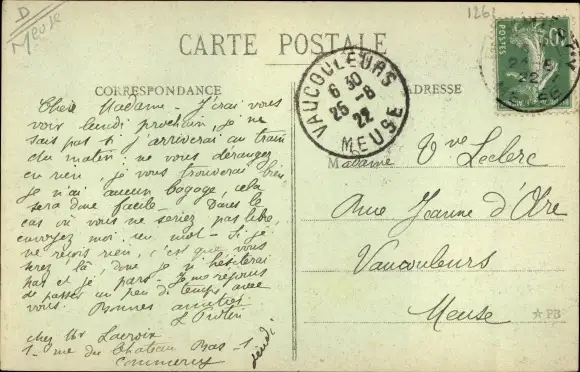 D
Meuse
126
CARTE POSTALE
CORRESPONDANCE
ADRESSE
VAUCOULEURS
6 30
25 -8
22
MEUSE
POSTES
Chère Madame - J'irai vous
voir lundi prochain je ne
sais pas si j'arriverai au train
du matin ne vous dérangez
en rien, je vous trouverai bien,
je n'ai aucun bagage, cela
sera donc facile - Dans le
cas où vous ne seriez pas libre,
envoyez moi un mot - Si je
ne reçois rien, c'est que vous
serez là, donc je n'hésiterai
pas et je pars - Je me réjouis
de passer un peu de temps avec
vous. Bonnes amitiés
chez Mr Lacroix
1 - rue du Château Bas - 1
Commercy
jeudi
Madame Vve Leclerc
Rue Jeanne d'Arc
Vaucouleurs
Meuse
PB